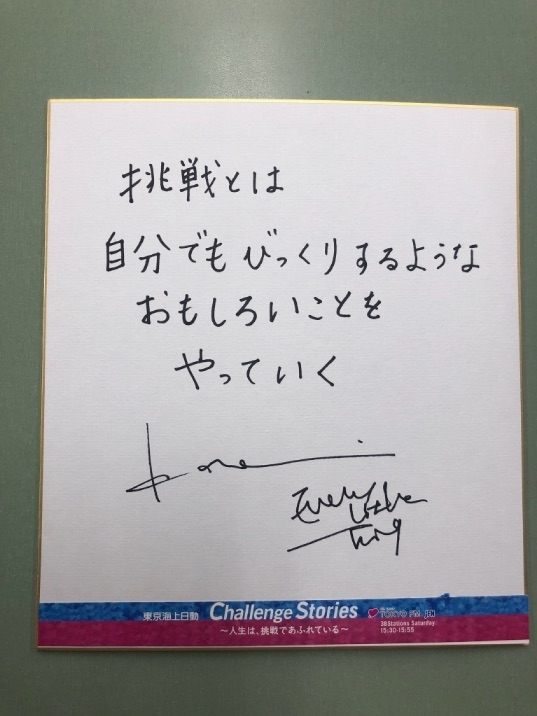 挑戦とは
自分でもびっくりするような
おもしろいことを
やっていく
Every
Little
Thing
東京海上日動 Challenge Stories TOKYO FM JFN
38Stations Saturday
～人生は、挑戦であふれている～ 15:30-15:55